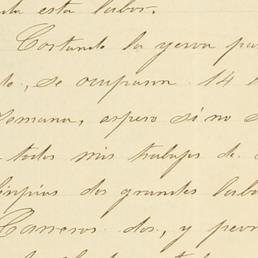 da esta labor.
Cortando la yerva pa
to, se ocuparan 14
semana, aspero si no
todos mis trabajos de
limpias dos grandes labo
Carreros dos, y peon